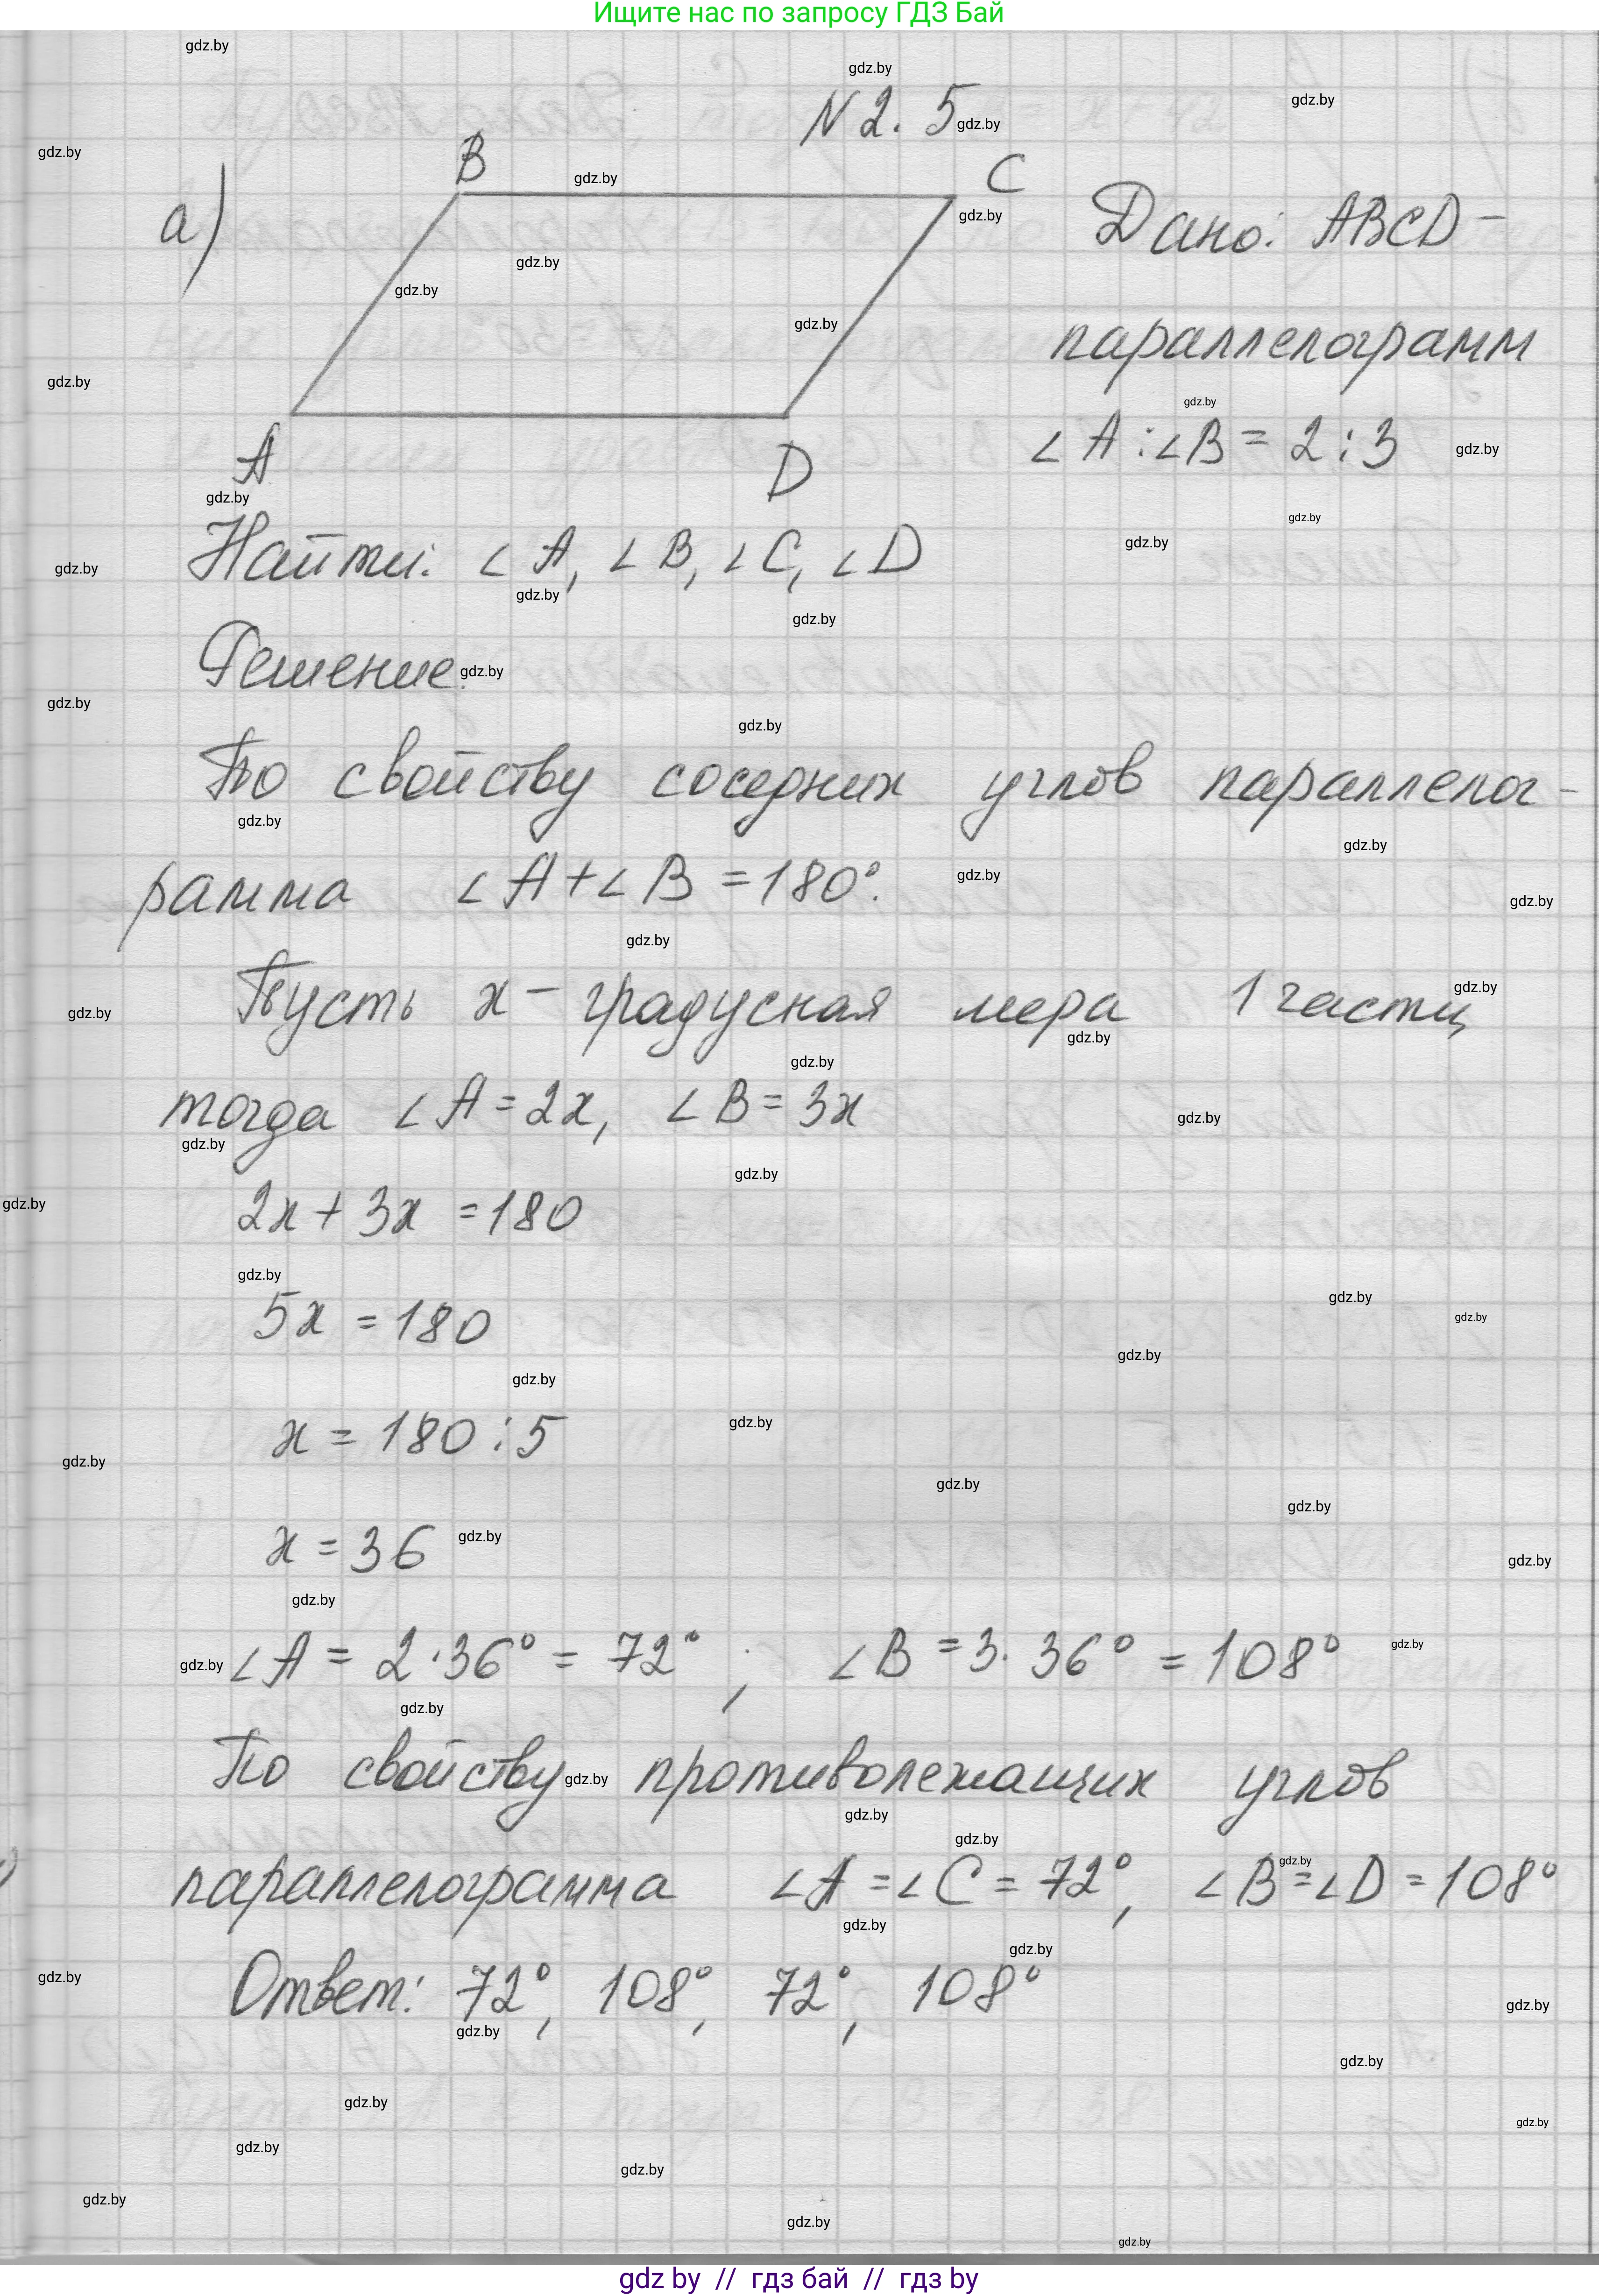 Ищите нас по запросу ГДЗ Бай
N 2. 5
а)
B
C
A
D
Дано: ABCD –
параллелограмм
∠A : ∠B = 2 : 3
Найти: ∠A, ∠B, ∠C, ∠D
Решение.
По свойству соседних углов параллелог-
рамма ∠A + ∠B = 180°.
Пусть x – градусная мера 1 части,
тогда ∠A = 2x, ∠B = 3x
2x + 3x = 180
5x = 180
x = 180 : 5
x = 36
∠A = 2 · 36° = 72° ; ∠B = 3 · 36° = 108°
По свойству противолежащих углов
параллелограмма ∠A = ∠C = 72°, ∠B = ∠D = 108°
Ответ: 72°, 108°, 72°, 108°
gdz by // гдз бай // гдз by